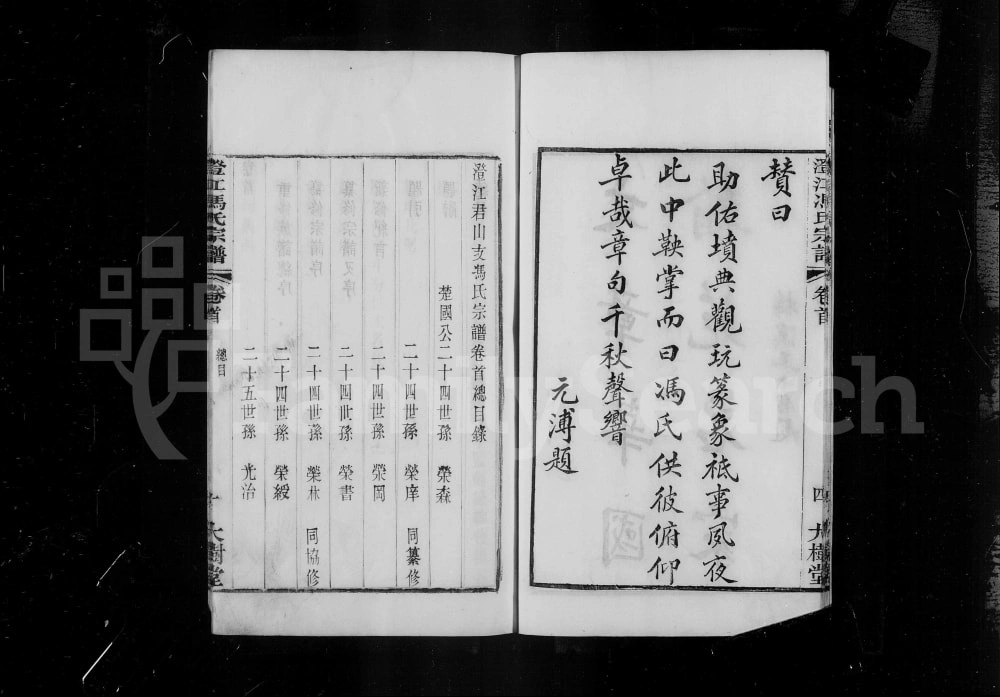 澄江馮氏宗譜 卷首 四 大樹堂
贊曰
助佑墳典觀玩篆象祗事夙夜
此中鞅掌而曰馮氏供彼俯仰
卓哉章句千秋聲響
元溥題
澄江君山支馮氏宗譜卷首總目錄
楚國公二十四世孫 榮森
二十四世孫 榮庠 同纂修
二十四世孫 榮岡
二十四世孫 榮書
二十四世孫 榮林 同協修
二十四世孫 榮綬
二十五世孫 光治
澄江馮氏宗譜 卷首 總目 大樹堂
FamilySearch